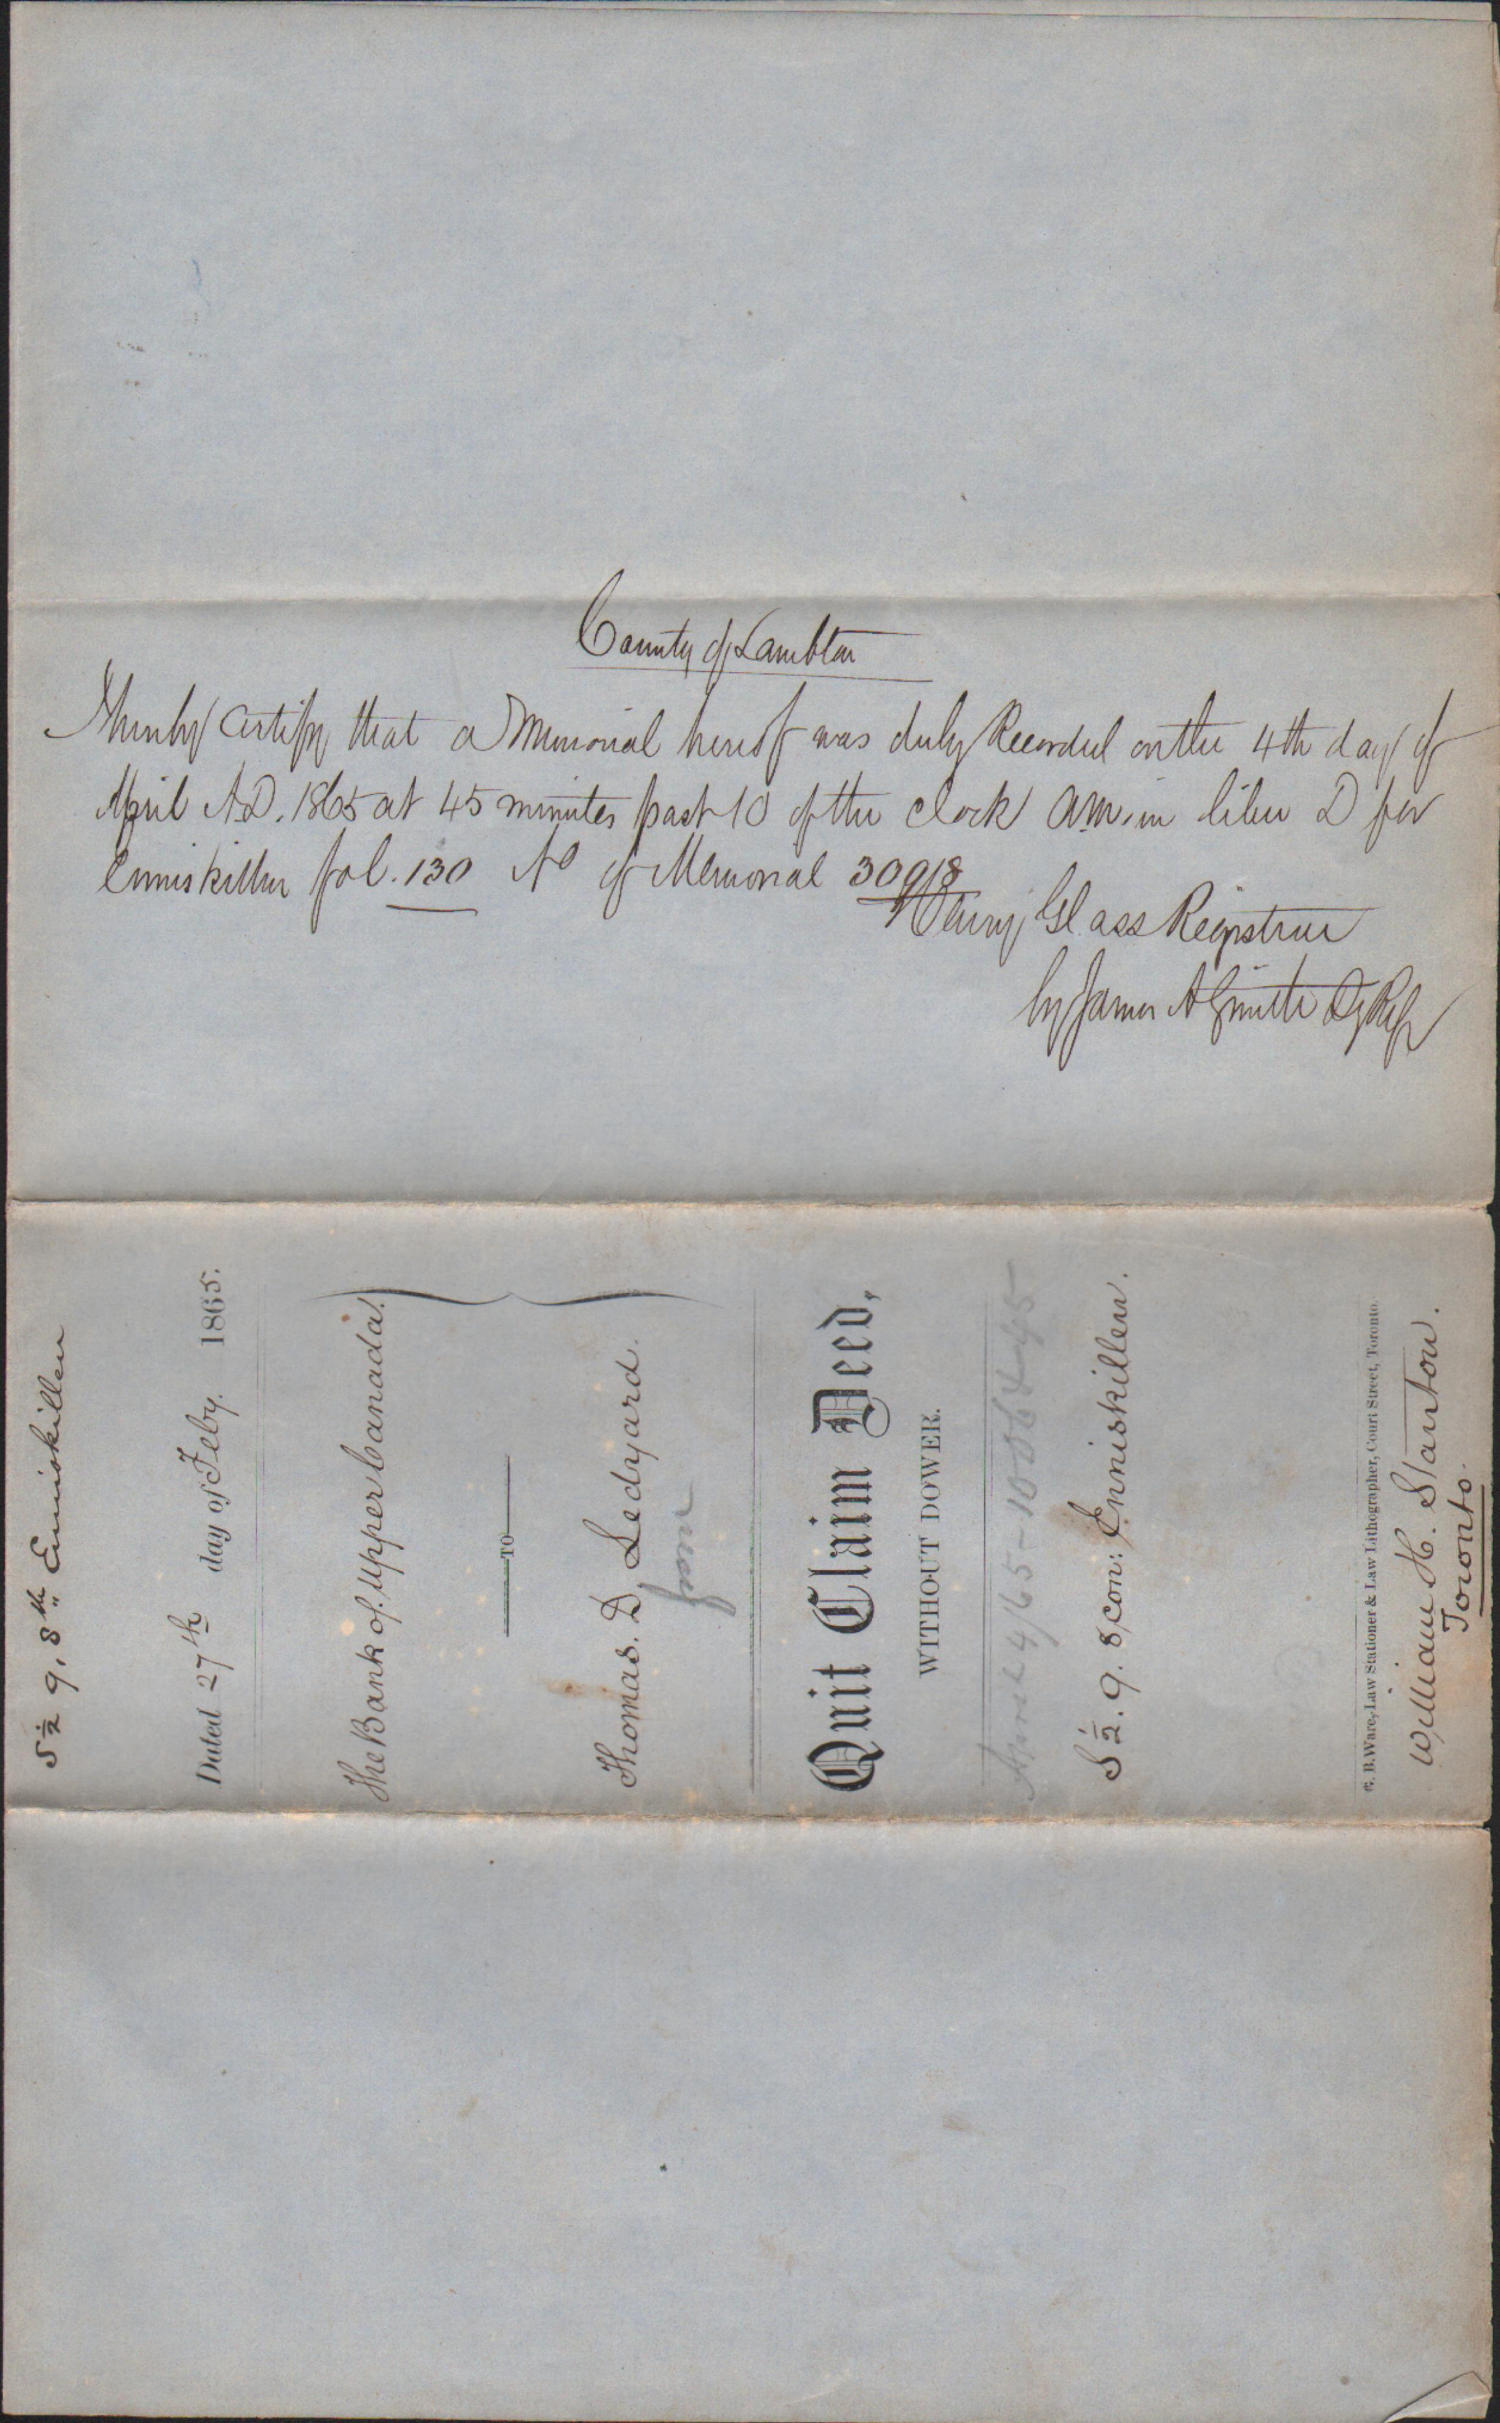 County of Lambton
I hereby Certify that a Memorial hereof was duly Recorded on the 4th day of
April A.D. 1865 at 45 minutes past 10 of the Clock A.M. in liber D for
Enniskillen fol. 130 No of Memorial 30918
Henry Glass Registrar
by James A Smith Dy Regr
S ½ 9, 8th Enniskillen
Dated 27th day of Feby. 1865.
The Bank of Upper Canada.
TO
Thomas. D. Ledyard.
Quit Claim Deed,
WITHOUT DOWER.
April 4/65 - 10
S ½. 9. 8, con: Enniskillen.
G. B. Ware, Law Stationer & Law Lithographer, Court Street, Toronto.
William H. Stanton.
Toronto.